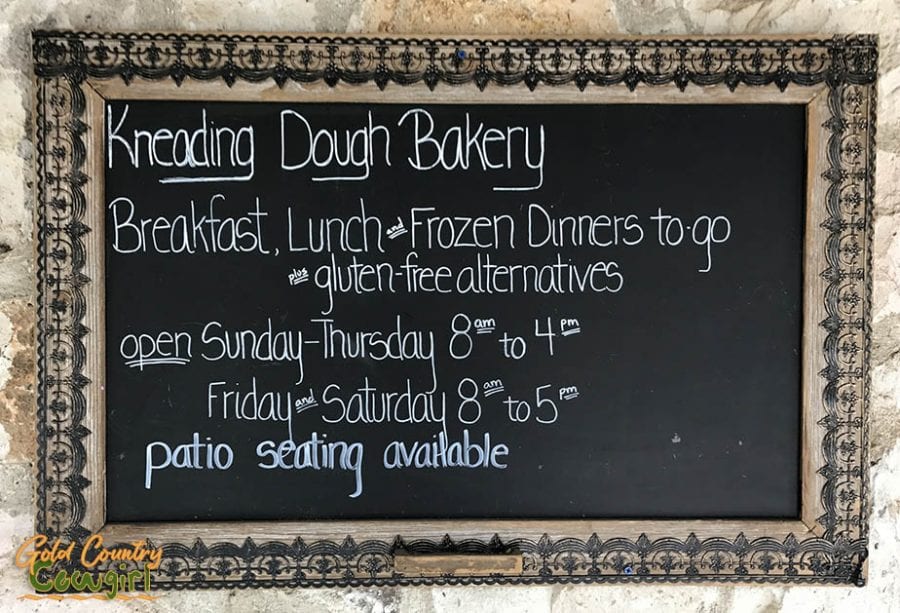 Kneading Dough Bakery
Breakfast, Lunch and Frozen Dinners to-go
plus gluten-free alternatives
open Sunday-Thursday 8am to 4pm
Friday and Saturday 8am to 5pm
patio seating available
Gold Country
Cowgirl